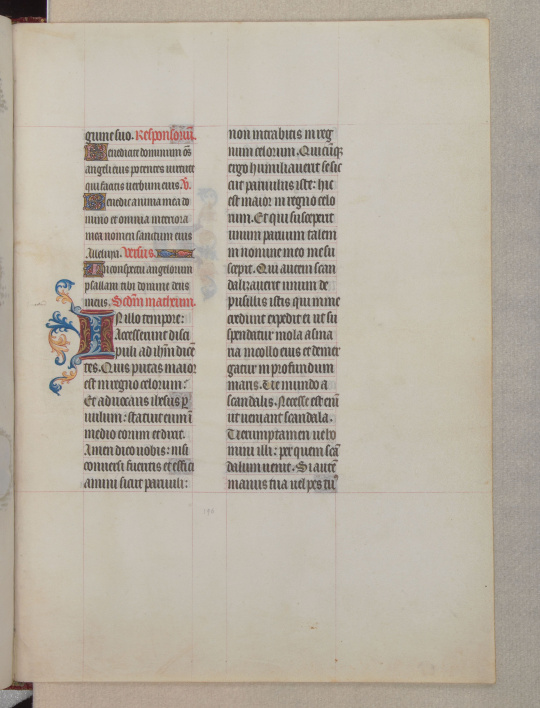 guine suo. Responsoriū.
Benedicite dominum oēs
angeli eius potentes virtute
qui facitis verbum eius. V.
Benedic anima mea do
mino et omnia interiora
mea nomen sanctum eius
Alleluya. Versus.
In conspectu angelorum
psallam tibi domine deus
meus. Scdm matheum.
In illo tempore:
Accesserunt disci
puli ad ihm dicē
tes. Quis putas maior
est in regno celorum:
Et advocans ihesus p
vulum: statuit eum ī
medio eorum et dixit.
Amen dico vobis: nisi
conversi fueritis et effici
amini sicut parvuli:
non intrabitis in reg
num celorum. Quicūq
ergo humiliaverit se sic
cut parvulus iste: hic
est maior in regno celo
rum. Et qui susceperit
unum parvum talem
in nomine meo me su
scepit. Qui autem scan
dalizaverit unum de
pusillis istis qui in me
credunt expedit ei ut su
spendatur mola asina
ria in collo eius et demer
gatur in profundum
maris. Ve mundo a
scandalis. Necesse est enī
ut veniant scandala.
Verumptamen ve ho
mini illi: per quem scā
dalum venit. Si autē
manus tua vel pes tu9